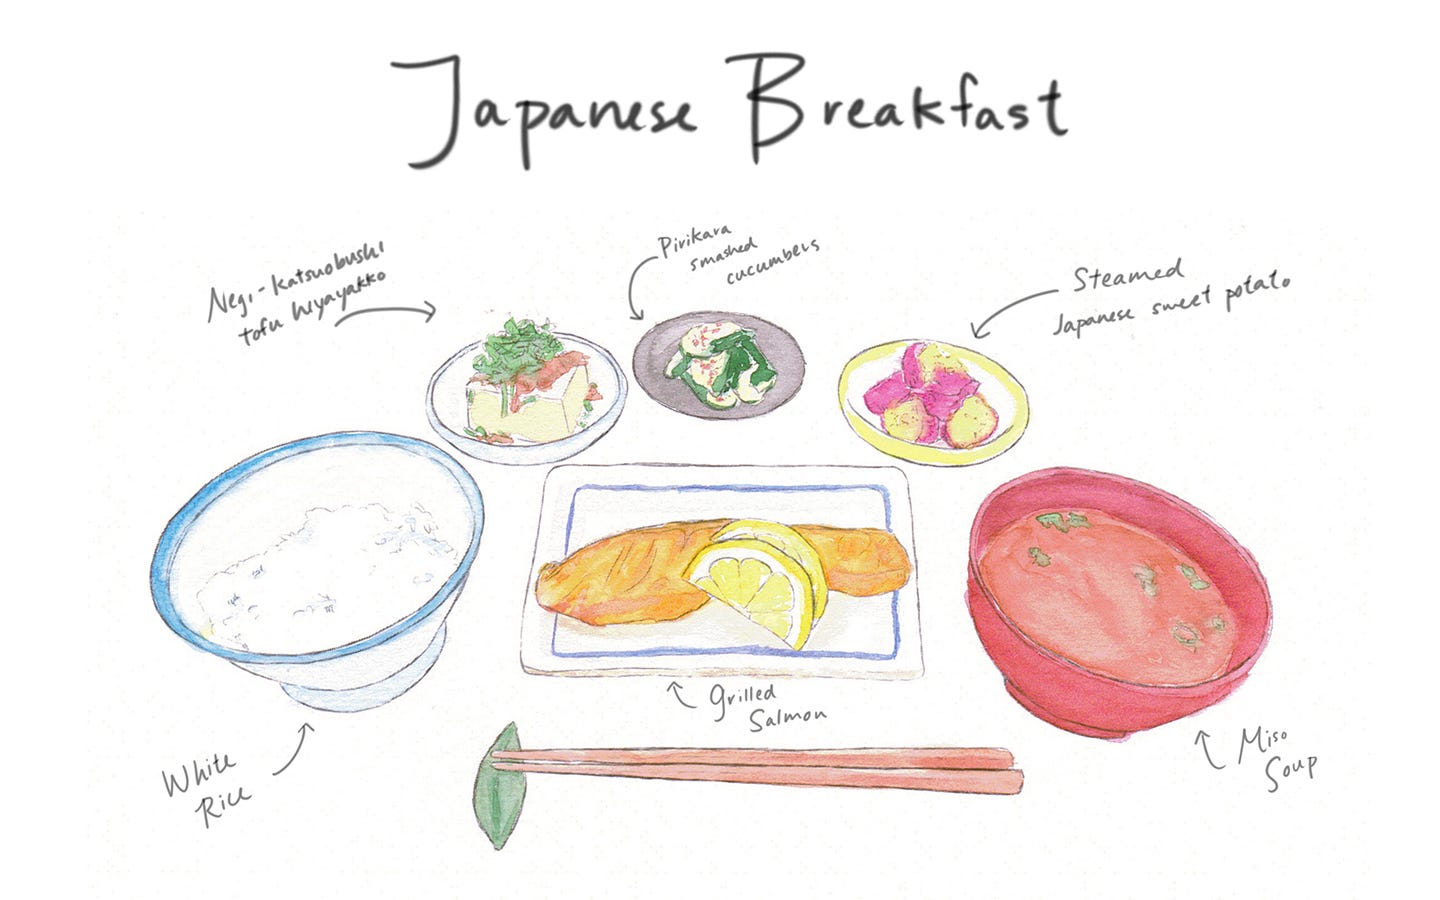 Japanese Breakfast
Negi-katsuobushi
tofu hiyayakko
Pirikara
smashed
cucumbers
Steamed
Japanese sweet potato
Grilled
Salmon
White
Rice
Miso
Soup